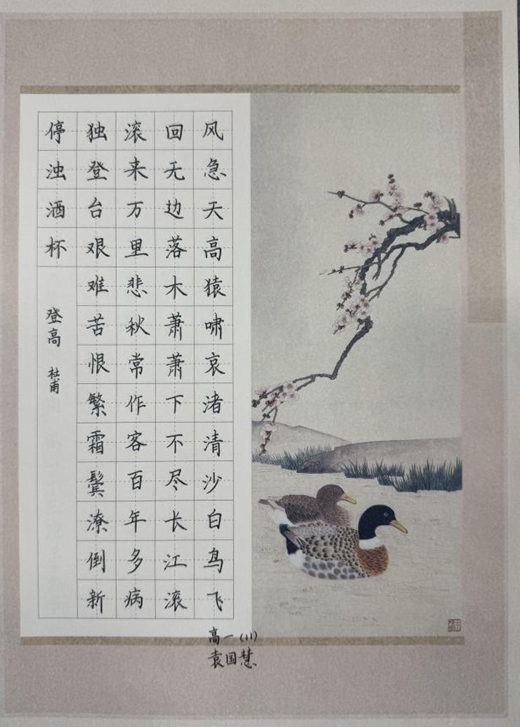 风急天高猿啸哀渚清沙白鸟飞
回无边落木萧萧下不尽长江滚
滚来万里悲秋常作客百年多病
独登台艰难苦恨繁霜鬓潦倒新
停浊酒杯
登高 杜甫
高一
袁国慧